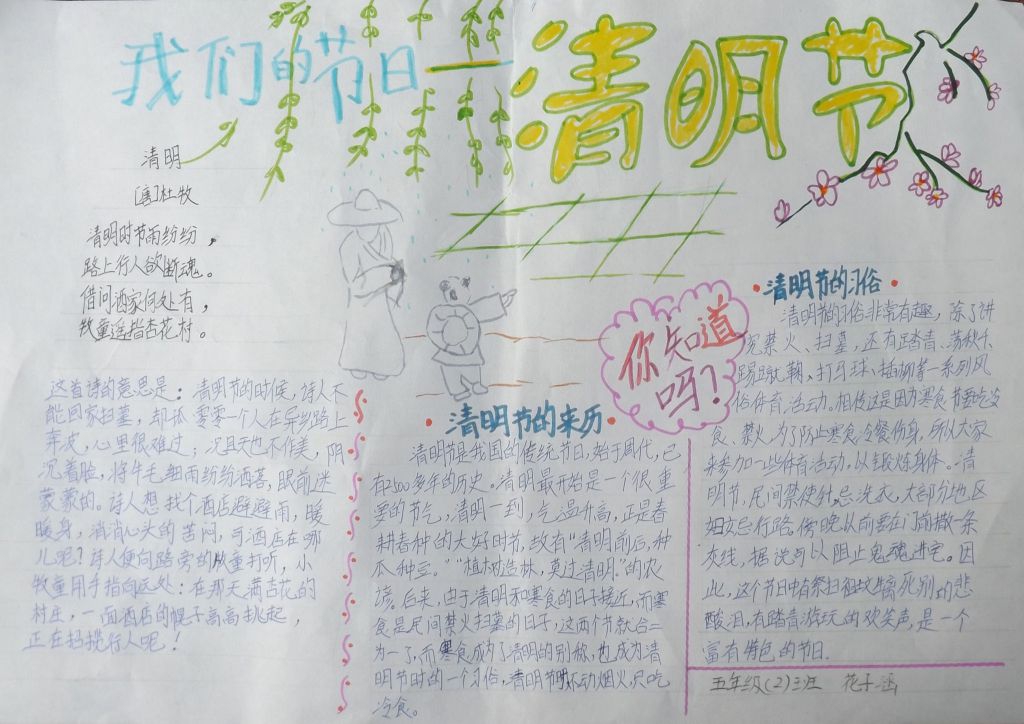 我们的节日
清明节
清明
[唐]杜牧
清明时节雨纷纷，
路上行人欲断魂。
借问酒家何处有，
牧童遥指杏花村。
这首诗的意思是：清明节的时候，诗人不
能回家扫墓，却孤零零一个人在异乡路上
奔波，心里很难过；况且天也不作美，阴
沉着脸，将牛毛细雨纷纷洒落，眼前迷
蒙蒙的。诗人想找个酒店避避雨，暖
暖身，消消心头的苦闷，可酒店在哪
儿呢？诗人便向路旁的牧童打听，小
牧童用手指向远处：在那天满杏花的
村庄，一面酒店的幌子高高挑起，
正在招揽行人呢！
清明节的来历
清明节是我国的传统节日，始于周代，已
有2500多年的历史。清明最开始是一个很重
要的节气，清明一到，气温升高，正是春
耕春种的大好时节，故有“清明前后，种
瓜种豆。”“植树造林，莫过清明。”的农
谚。后来，由于清明和寒食的日子接近，而寒
食是民间禁火扫墓的日子，这两个节就合二
为一了，而寒食成为了清明的别称，也成为清
明节时的一个习俗，清明节时不动烟火，只吃
冷食。
你知道
吗？
清明节的习俗
清明节的习俗非常有趣，除了讲
究禁火、扫墓，还有踏青、荡秋千、
踢蹴鞠、打马球、插柳等一系列风
俗体育活动。相传这是因为寒食节要吃冷
食、禁火，为了防止寒食冷餐伤身，所以大家
来参加一些体育活动，以锻炼身体。清
明节，民间禁使针，忌洗衣，大部分地区
妇女忌行路。傍晚以前要在门前撒一条
灰线，据说可以阻止鬼魂进宅。因
此，这个节日中有祭扫祖坟生离死别的悲
酸泪，有踏青游玩的欢笑声，是一个
富有特色的节日。
五年级(2)班 花千涵